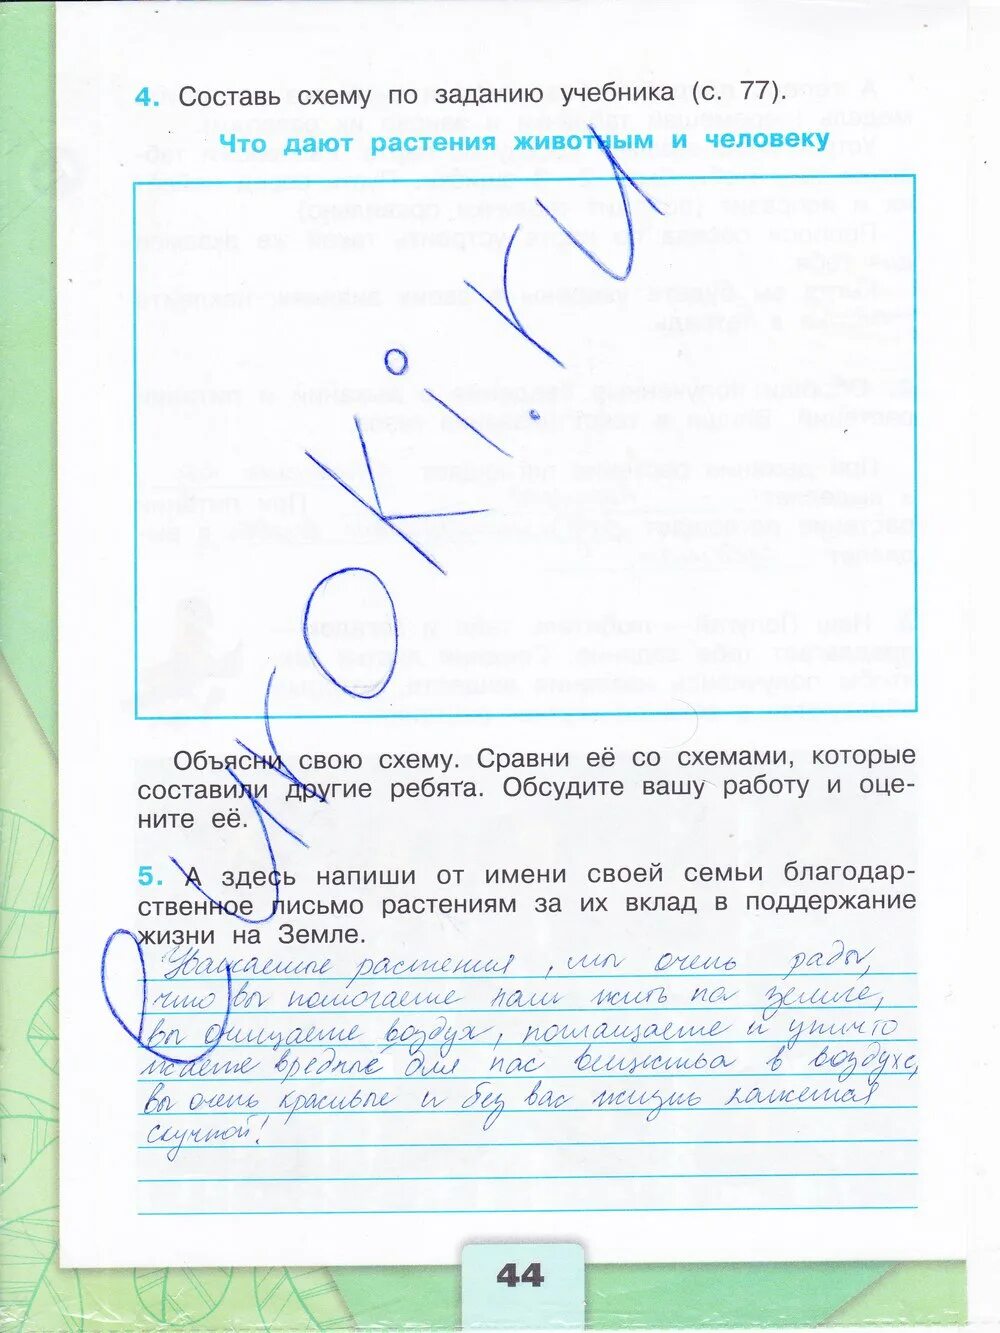 4. Составь схему по заданию учебника (с. 77).
Что дают растения животным и человеку
Объясни свою схему. Сравни её со схемами, которые
составили другие ребята. Обсудите вашу работу и оце-
ните её.
5. А здесь напиши от имени своей семьи благодар-
ственное письмо растениям за их вклад в поддержание
жизни на Земле.
Уважаемые растения, мы очень рады,
что вы помогаете нам жить на земле,
вы очищаете воздух, поглащаете и уничто
жаете вредные для нас вещества в воздухе,
вы очень красивые и без вас жизнь кажется
скучной!
44